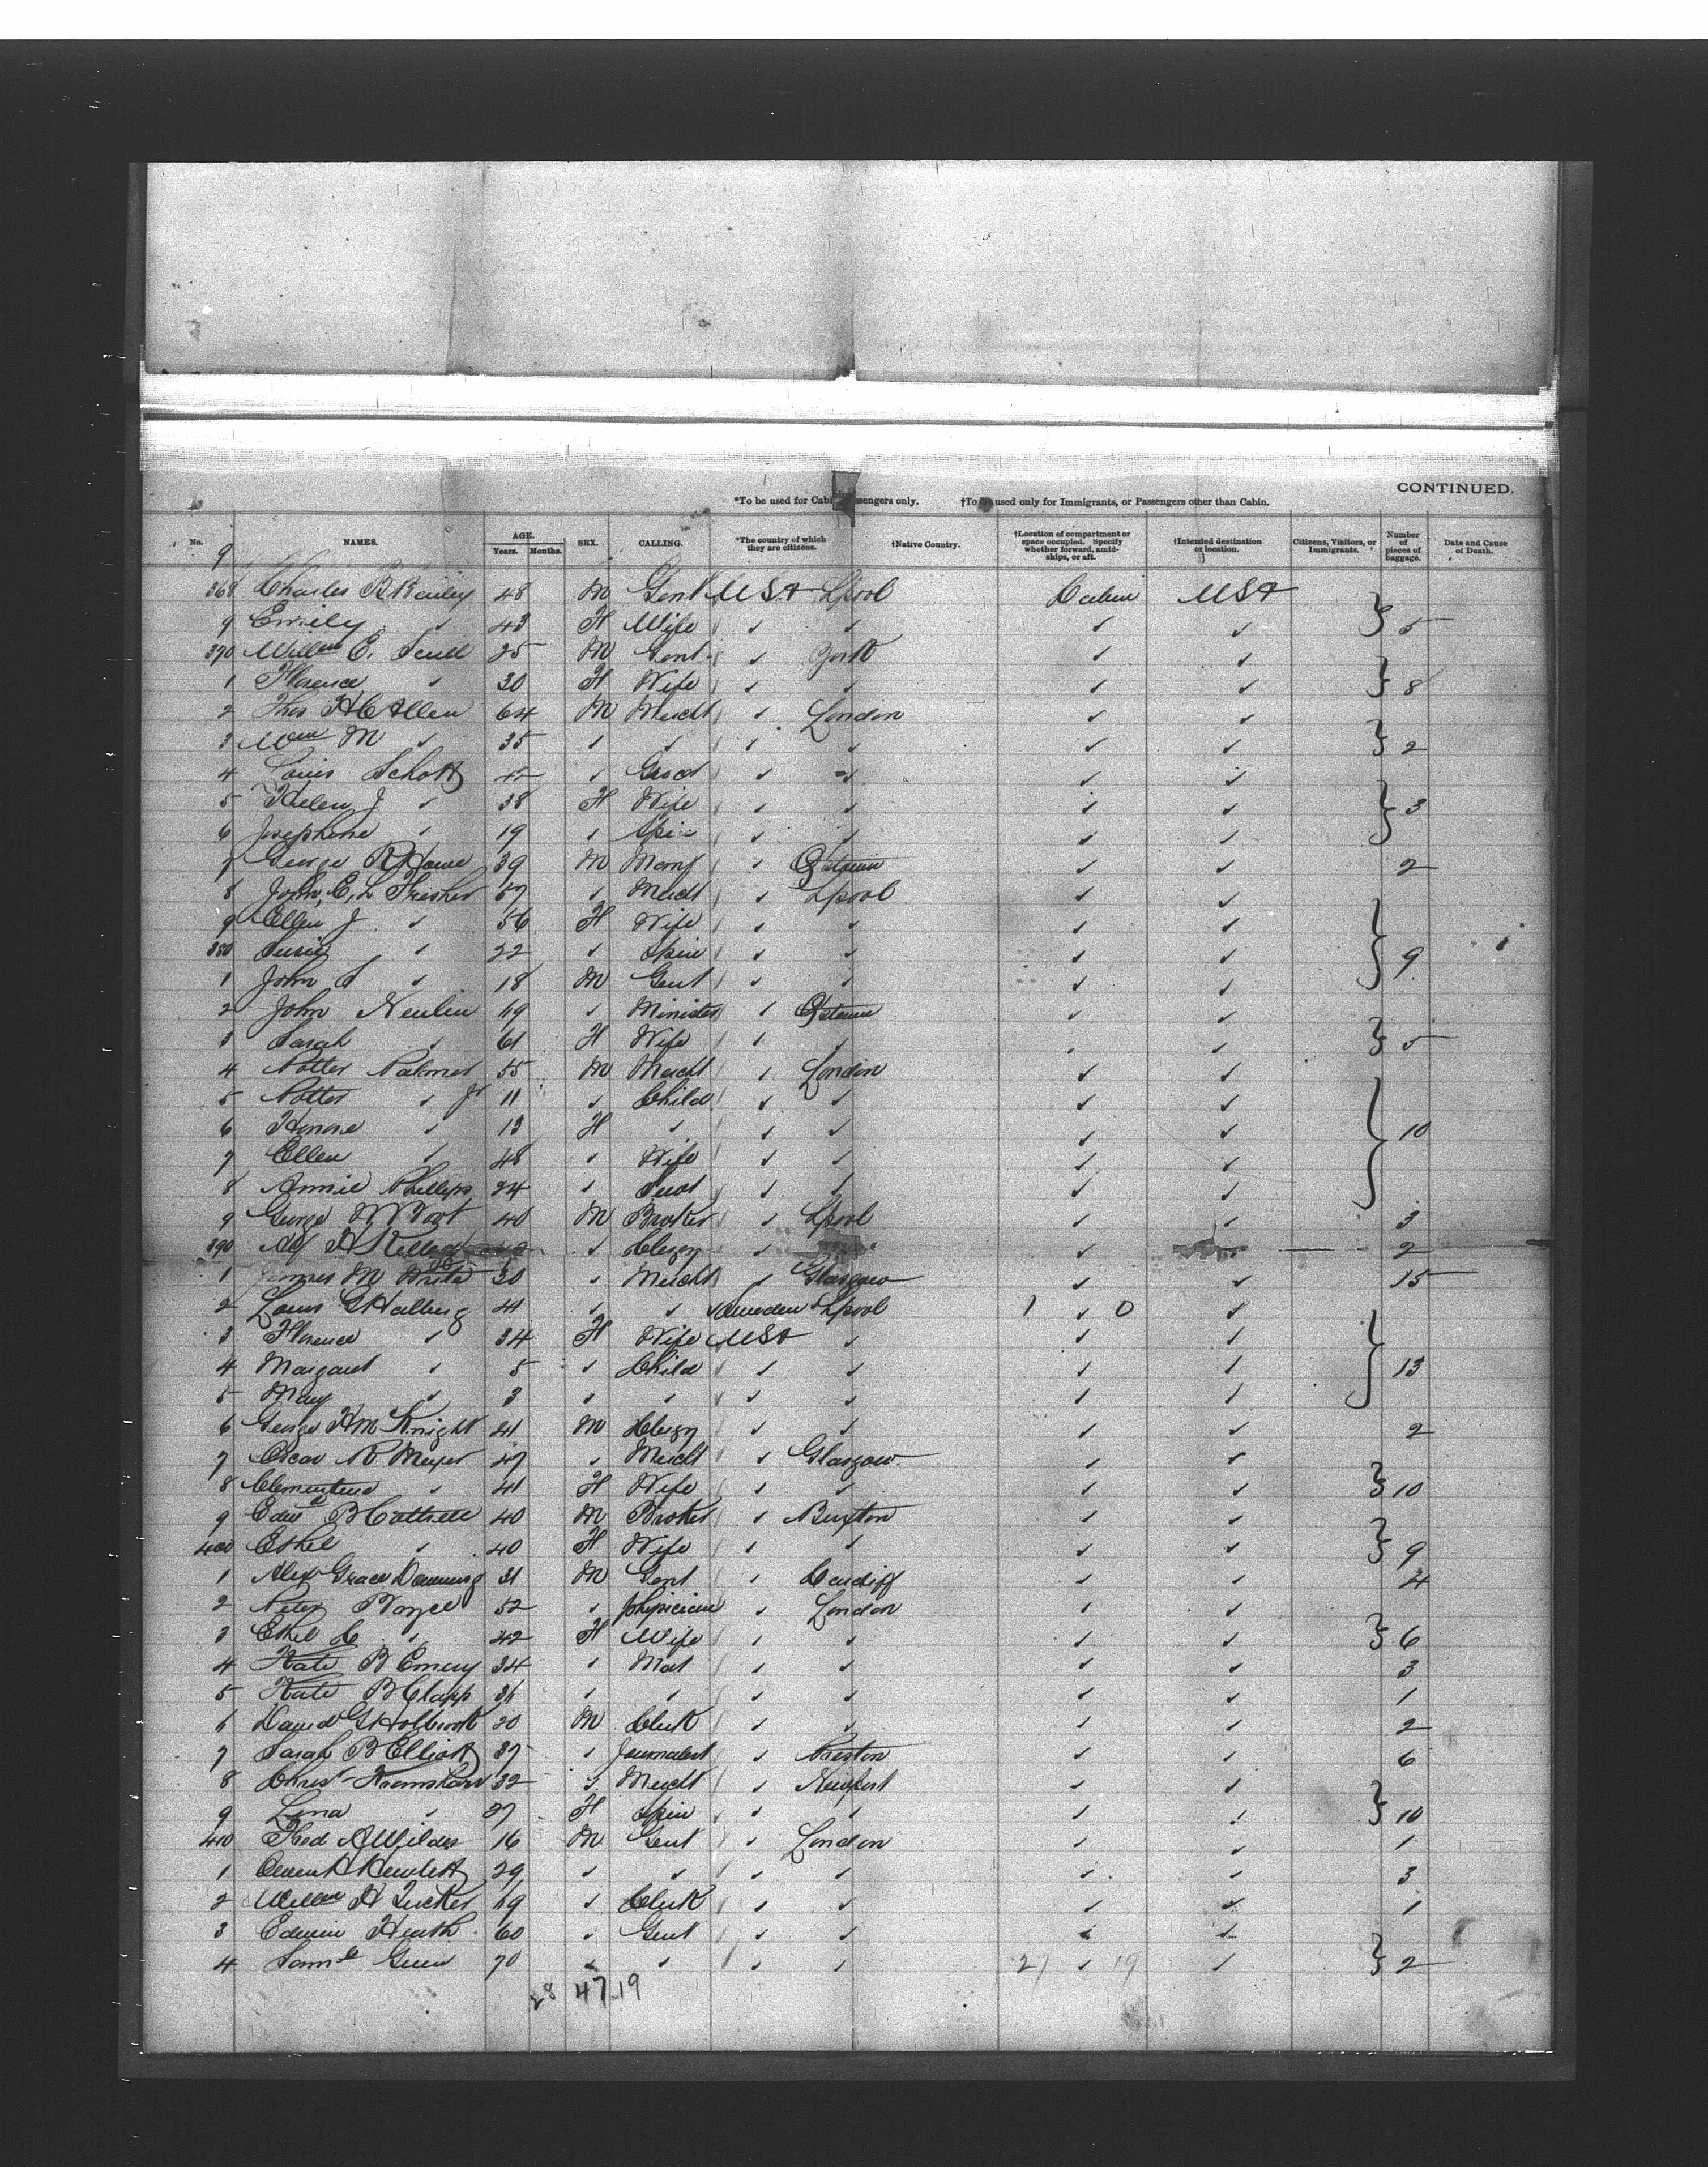 CONTINUED.
*To be used for Cabin Passengers only. †To be used only for Immigrants, or Passengers other than Cabin.
No. NAMES. AGE. Years. Months. SEX. CALLING. *The country of which they are citizens. †Native Country. †Location of compartment or space occupied. Specify whether forward, amidships, or aft. †Intended destination or location. Citizens, Visitors, or Immigrants. Number of pieces of baggage. Date and Cause of Death.
9
368 Charles B Bailey 48 M Gent USA Lpool Cabin USA
9 Emily ✓ 43 F Wife ✓ ✓ ✓ ✓ } 5
370 Willm E. 25 M Gent ✓ York ✓ ✓
1 Florence ✓ 30 F Wife ✓ ✓ ✓ ✓ } 8
2 Thos H C Allen 64 M Mercht ✓ London ✓ ✓
3 Wm M ✓ 35 ✓ ✓ ✓ ✓ ✓ ✓ } 2
4 Louis Schott ✓ ✓ ✓ ✓ ✓
5 Helen J ✓ 38 F Wife ✓ ✓ ✓ ✓ } 3
6 Josephine ✓ 19 ✓ Spin ✓ ✓ ✓ ✓
7 George R Howe 39 M Manf ✓ Qstown ✓ ✓ 2
8 John, E, L 57 ✓ Mercht ✓ Lpool ✓ ✓
9 Ellen J ✓ 56 F Wife ✓ ✓ ✓ ✓
380 Susie ✓ 22 ✓ Spin ✓ ✓ ✓ ✓ } 9
1 John S ✓ 18 M Gent ✓ ✓ ✓ ✓
2 John Neulin ✓ Minister ✓ Qstown ✓ ✓
3 Sarah ✓ 61 F Wife ✓ ✓ ✓ ✓ } 5
4 Potter Palmer 55 M Mercht ✓ London ✓ ✓
5 Potter ✓ Jr 11 ✓ Child ✓ ✓ ✓ ✓
6 Honore ✓ 13 F ✓ ✓ ✓ ✓ ✓ } 10
7 Ellen ✓ 48 ✓ Wife ✓ ✓ ✓ ✓
8 Annie Phillips 24 ✓ ✓ ✓ ✓ ✓
9 George W 40 M Broker ✓ Lpool ✓ ✓ 3
390 H Kellogg ✓ Clergy ✓ ✓ 2
1 James M White 30 ✓ Mercht ✓ Glasgow ✓ ✓ 15
2 Louis G Halberg 41 ✓ ✓ Sweden Lpool 1 ✓ 0 ✓
3 Florence ✓ 34 F Wife USA ✓ ✓ ✓
4 Margaret ✓ 5 ✓ Child ✓ ✓ ✓ ✓ } 13
5 May ✓ 3 ✓ ✓ ✓ ✓ ✓ ✓
6 George H M Knight 41 M Clergy ✓ ✓ ✓ ✓ 2
7 Oscar R Meyer 47 ✓ Mercht ✓ Glasgow ✓ ✓
8 Clementine ✓ 41 F Wife ✓ ✓ ✓ ✓ } 10
9 Edwd B Cottrell 40 M Broker ✓ Buxton ✓ ✓
400 Ethel ✓ 40 F Wife ✓ ✓ ✓ ✓ } 9
1 Alex Grace Downing 31 M Gent ✓ Cardiff ✓ ✓ 4
2 Peter Boyce 52 ✓ physician ✓ London ✓ ✓
3 Ethel C ✓ 42 F Wife ✓ ✓ ✓ ✓ } 6
4 Kate B Emery 34 ✓ Mat ✓ ✓ ✓ ✓ 3
5 Kate B Clapp 36 ✓ ✓ ✓ ✓ ✓ ✓ 1
6 David G Holbrook 20 M Clerk ✓ ✓ ✓ ✓ 2
7 Sarah B Elliott 37 ✓ Journalist ✓ Preston ✓ ✓ 6
8 Christ 32 ✓ Mercht ✓ Newport ✓ ✓
9 Lena ✓ 27 F Spin ✓ ✓ ✓ ✓ } 10
410 Fred A Wilder 16 M Gent ✓ London ✓ ✓ 1
1 Hewlett 29 ✓ ✓ ✓ ✓ ✓ ✓ 3
2 Willm H Tucker 19 ✓ Clerk ✓ ✓ ✓ ✓ 1
3 Edwin Heath 60 ✓ Gent ✓ ✓ ✓ ✓
4 Saml Green 70 ✓ ✓ ✓ ✓ 27 ✓ 19 ✓ } 2
28 47.19